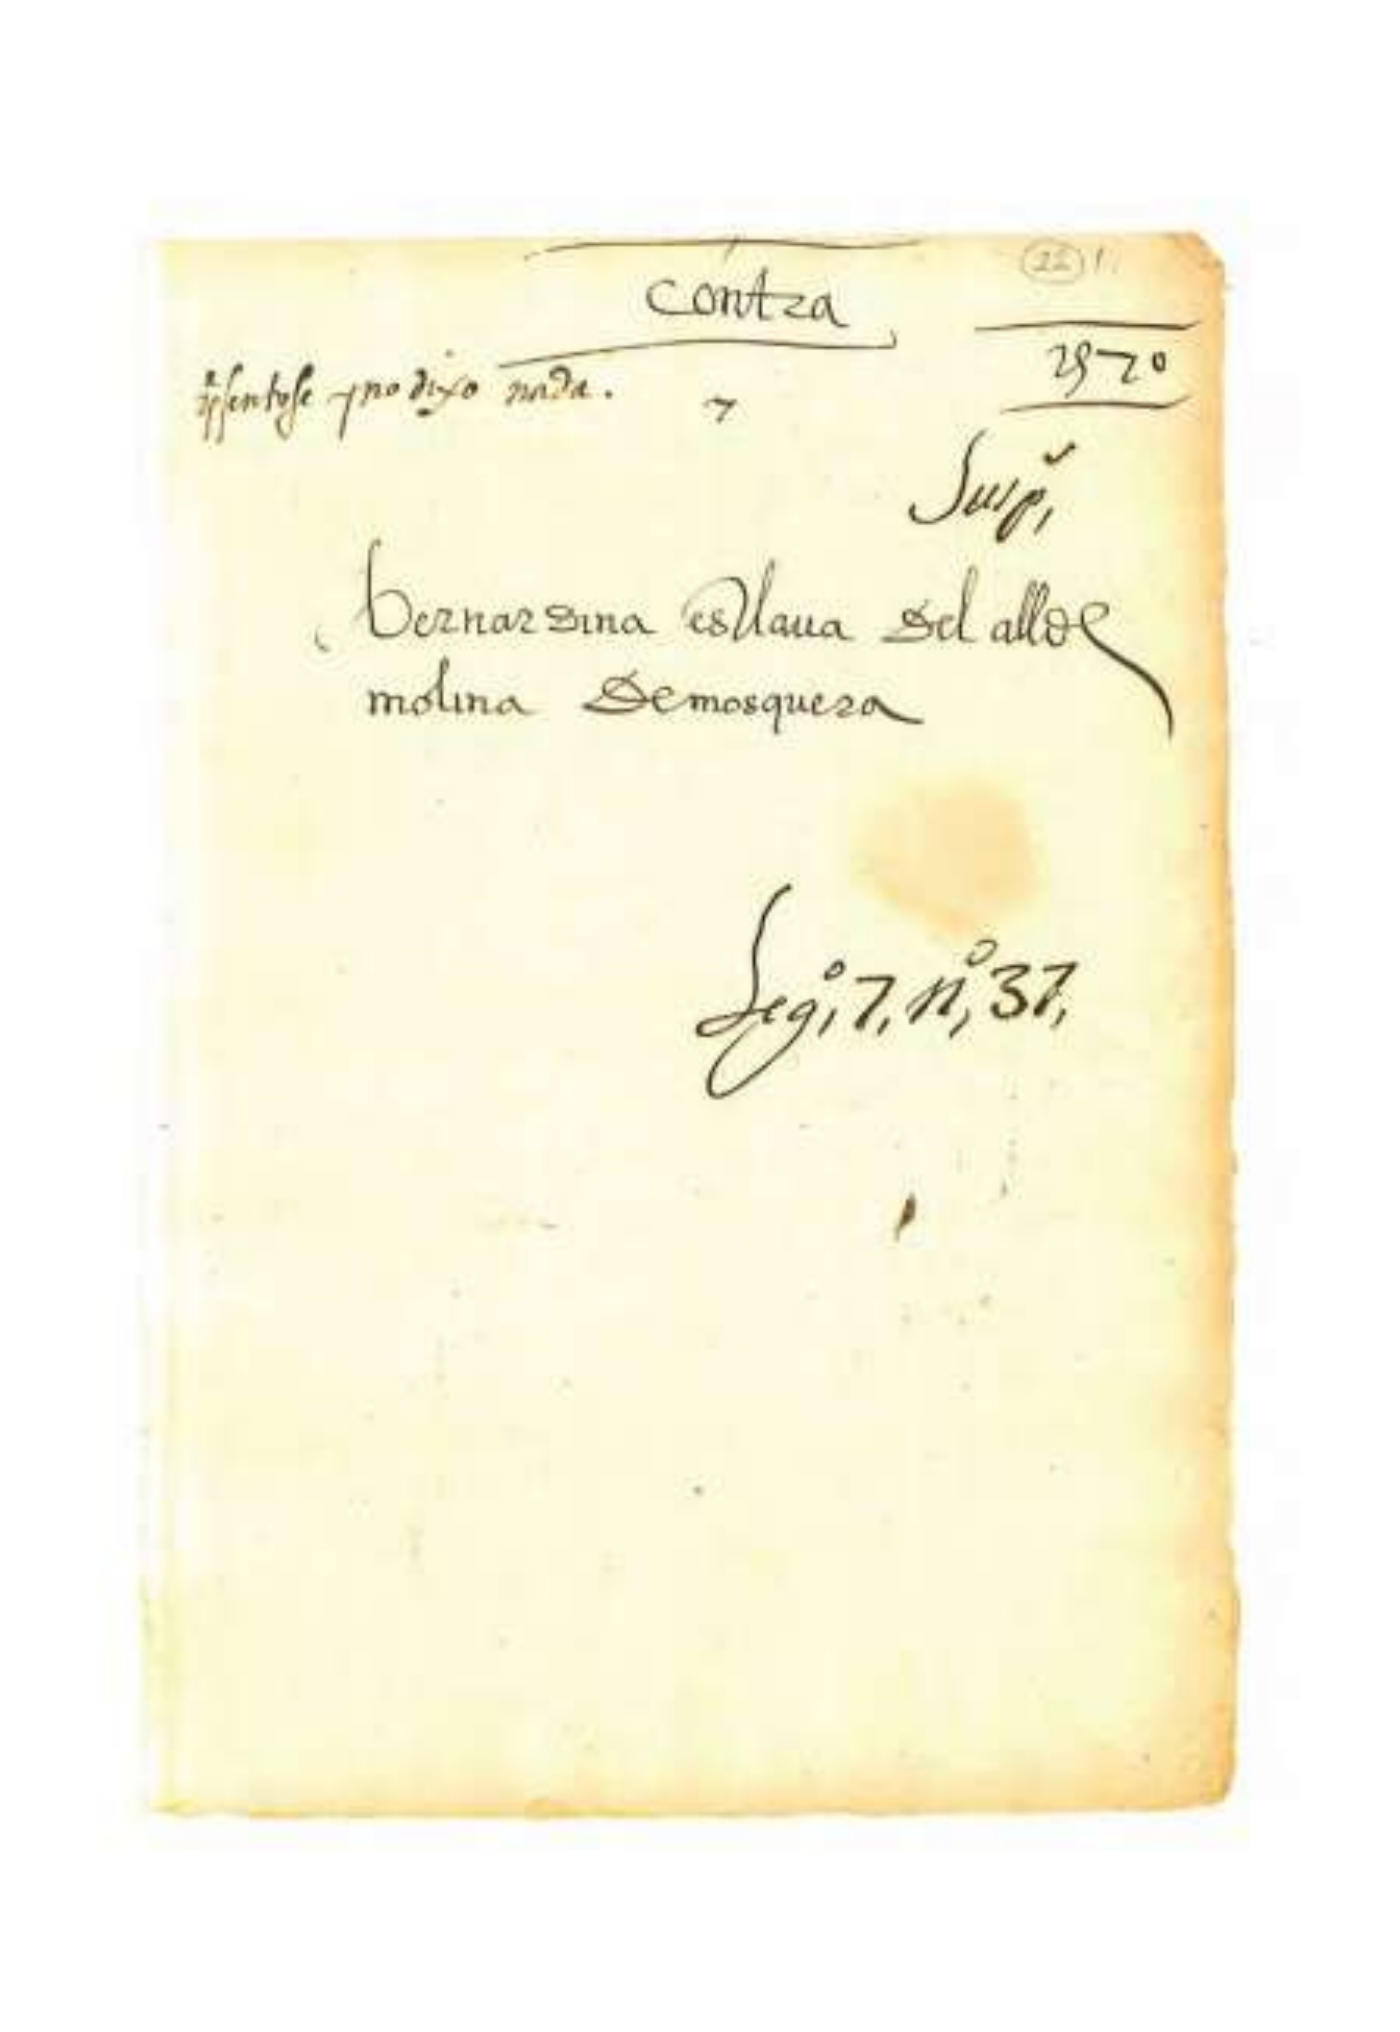 22 1
contra
1570
presentose y no dixo nada.
7
Susp,
bernardina esclaua del allde
molina de mosquera
Leg,º 7, n,º 37,